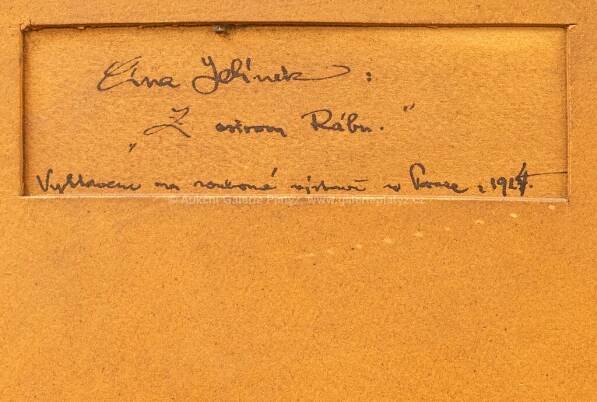 Jelínek :
"Z ostrova Rábu."
na souborné výstavě v Praze r. 1924.
© Aukční Galerie Platýz, www.galerieplatyz.cz